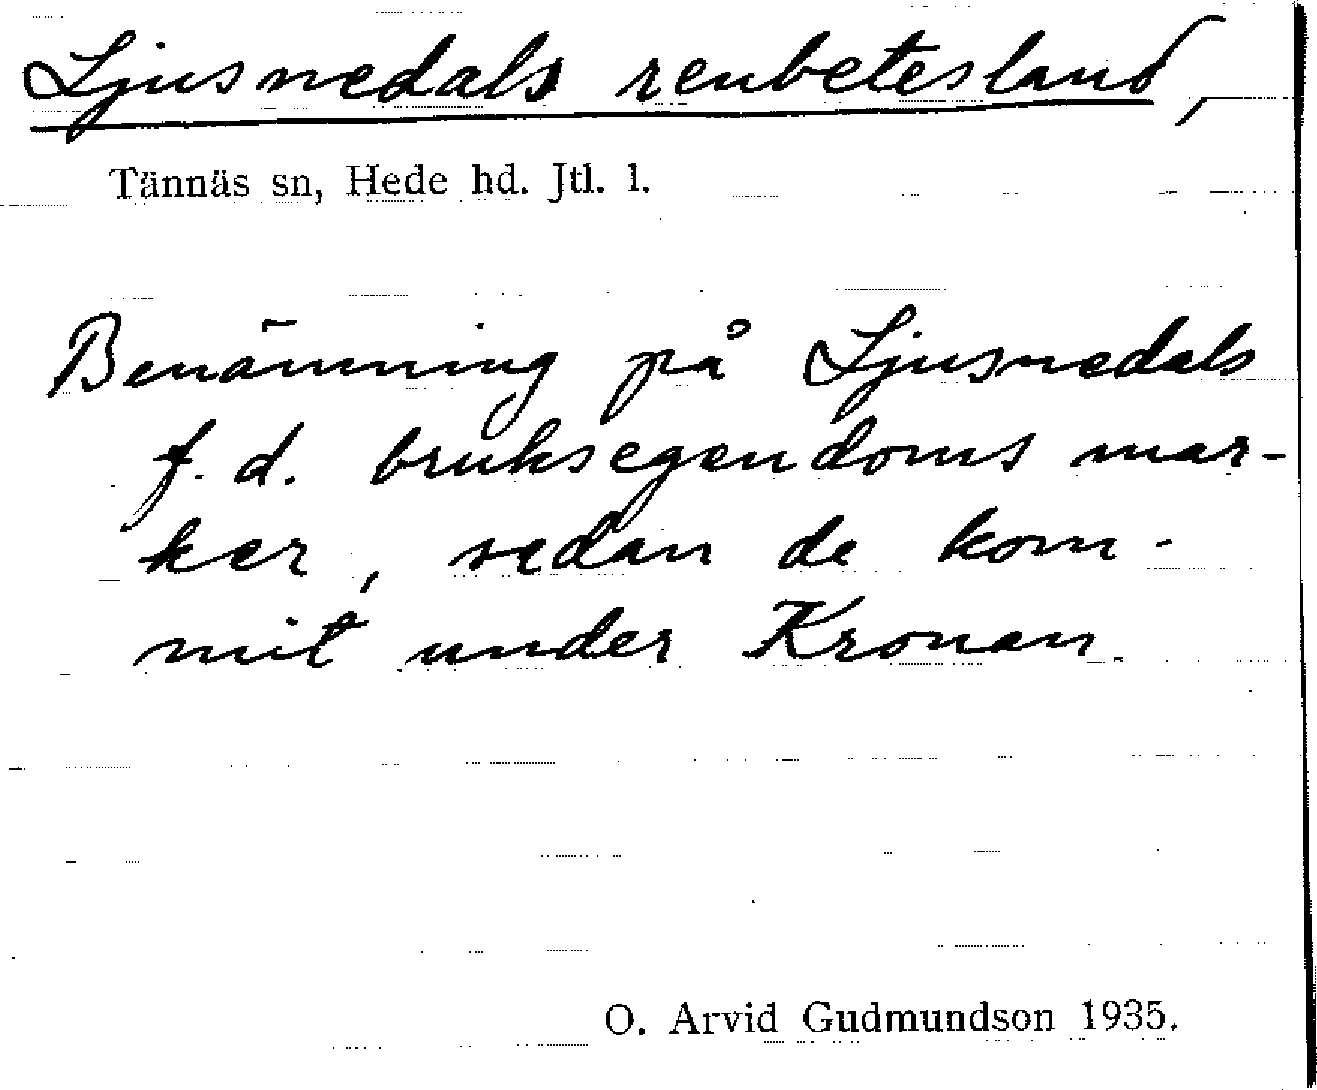 Ljusnedals renbetesland,
Tännäs sn, Hede hd. Jtl. l.
Benämning på Ljusnedals
f. d. bruksegendoms mar-
ker, sedan de kom-
mit under Kronan.
O. Arvid Gudmundson 1935.